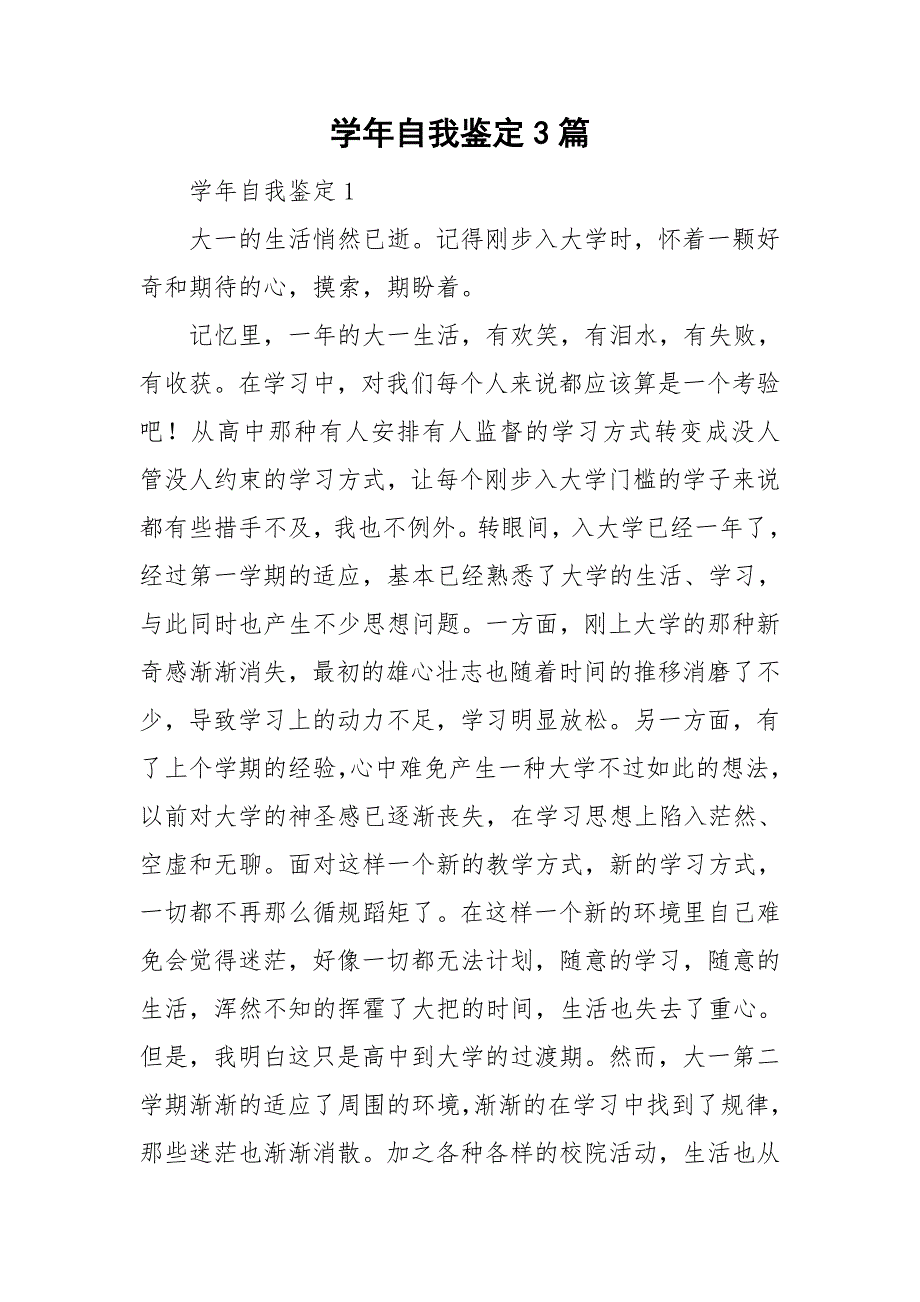 学年自我鉴定3篇
学年自我鉴定1
大一的生活悄然已逝。记得刚步入大学时，怀着一颗好
奇和期待的心，摸索，期盼着。
记忆里，一年的大一生活，有欢笑，有泪水，有失败，
有收获。在学习中，对我们每个人来说都应该算是一个考验
吧！从高中那种有人安排有人监督的学习方式转变成没人
管没人约束的学习方式，让每个刚步入大学门槛的学子来说
都有些措手不及，我也不例外。转眼间，入大学已经一年了，
经过第一学期的适应，基本已经熟悉了大学的生活、学习，
与此同时也产生不少思想问题。一方面，刚上大学的那种新
奇感渐渐消失，最初的雄心壮志也随着时间的推移消磨了不
少，导致学习上的动力不足，学习明显放松。另一方面，有
了上个学期的经验，心中难免产生一种大学不过如此的想法，
以前对大学的神圣感已逐渐丧失，在学习思想上陷入茫然、
空虚和无聊。面对这样一个新的教学方式，新的学习方式，
一切都不再那么循规蹈矩了。在这样一个新的环境里自己难
免会觉得迷茫，好像一切都无法计划，随意的学习，随意的
生活，浑然不知的挥霍了大把的时间，生活也失去了重心。
但是，我明白这只是高中到大学的过渡期。然而，大一第二
学期渐渐的适应了周围的环境，渐渐的在学习中找到了规律，
那些迷茫也渐渐消散。加之各种各样的校院活动，生活也从